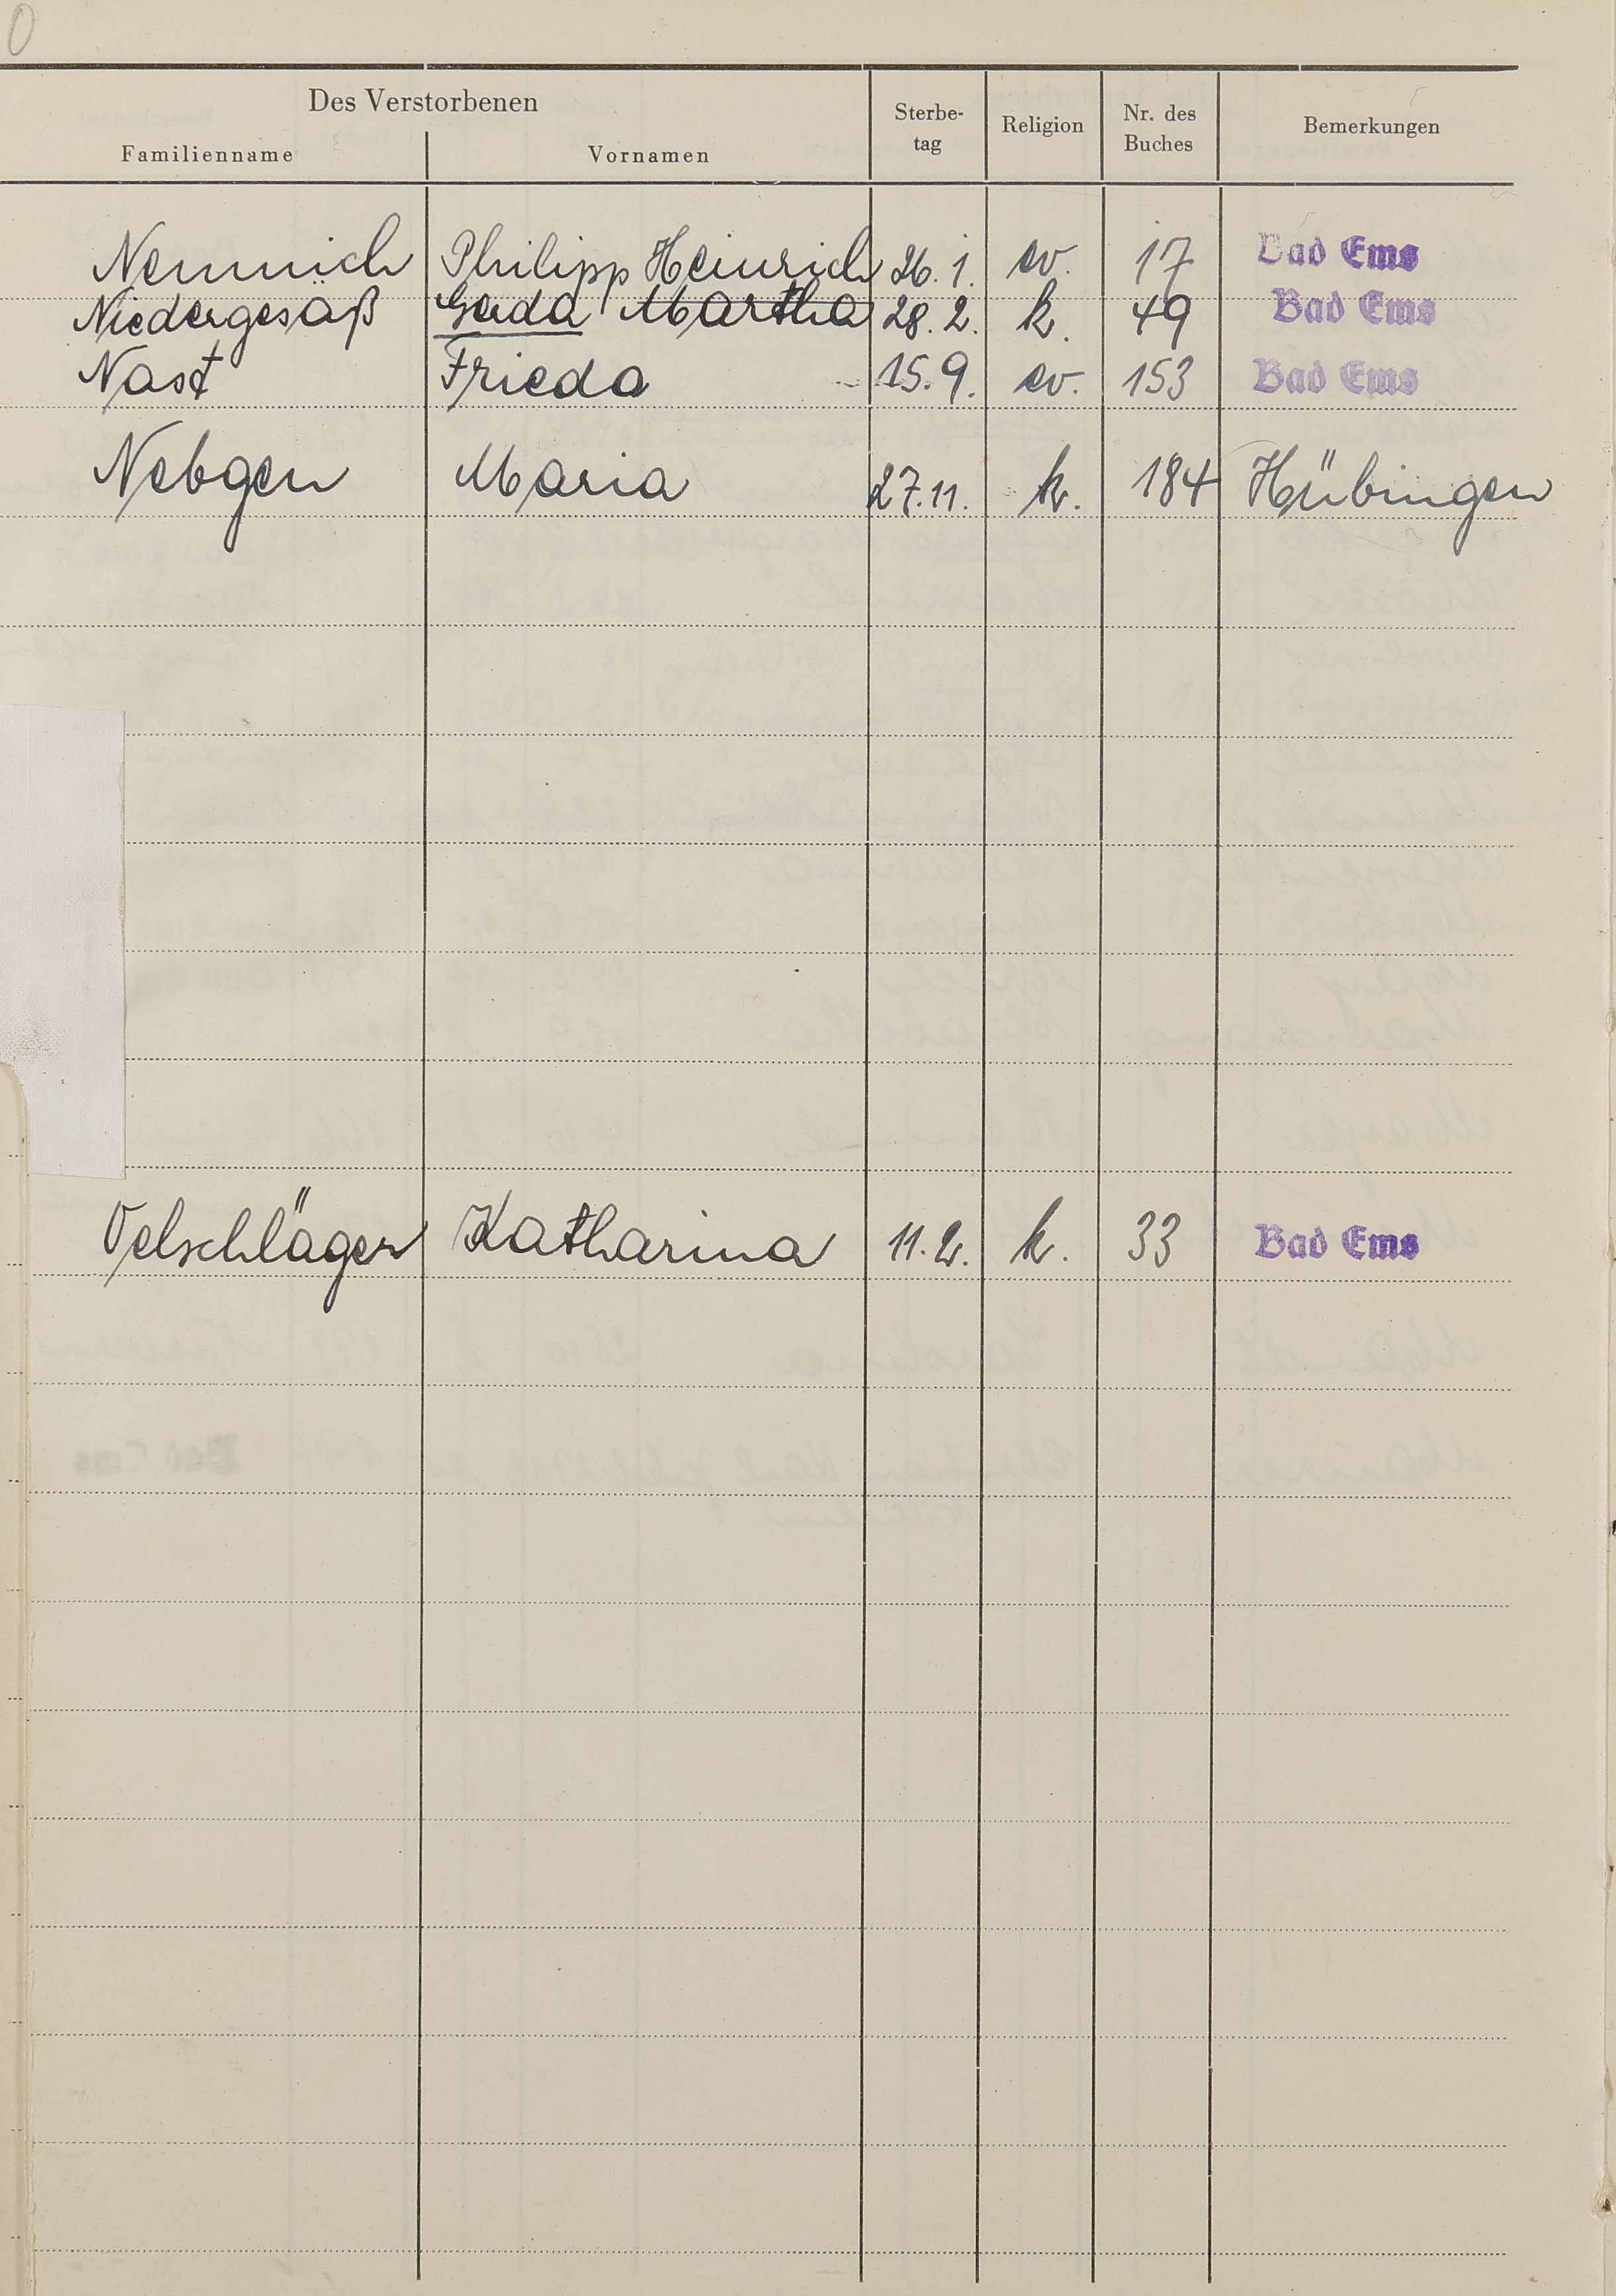 O
Des Verstorbenen
Familienname Vornamen Sterbe-tag Religion Nr. des Buches Bemerkungen
Nemnich Philipp Heinrich 26.1. ev. 17 Bad Ems
Niedergesäß Gerda Martha 28.2. k. 49 Bad Ems
Nast Frieda 15.9. ev. 153 Bad Ems
Nebgen Maria 27.11. k. 184 Hübingen
Oelschläger Katharina 11.2. k. 33 Bad Ems